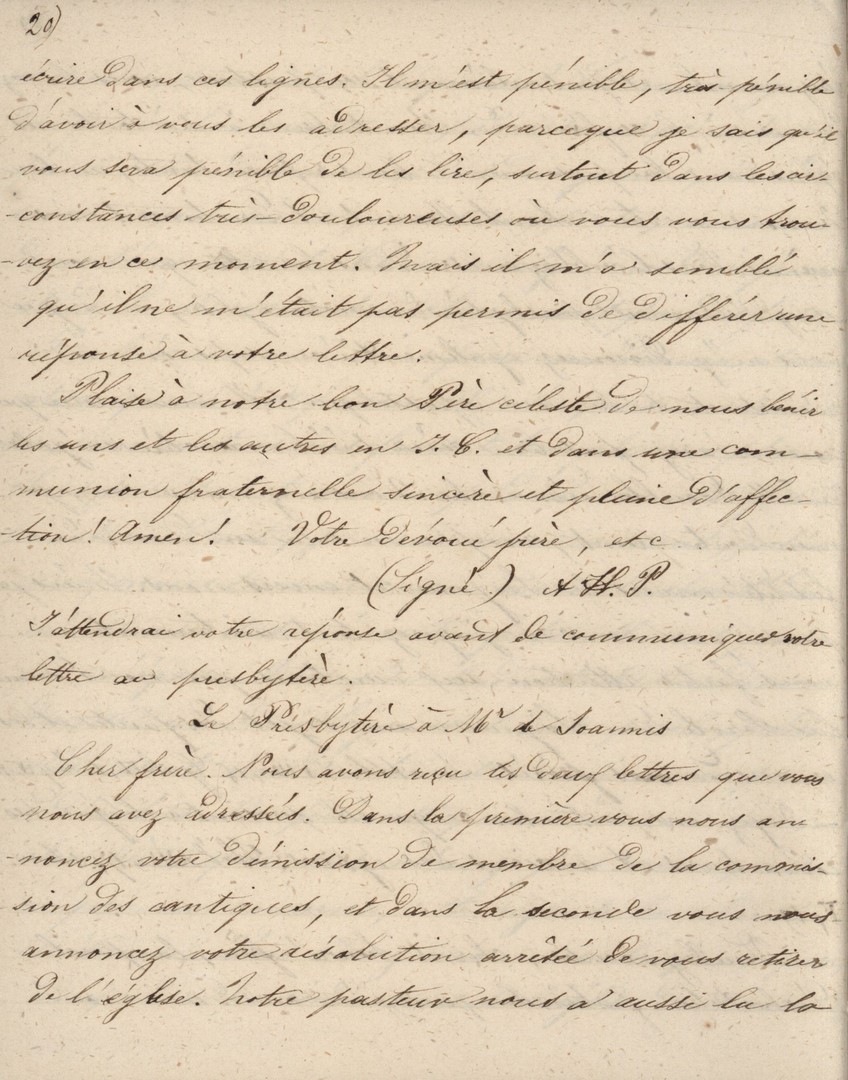 20)
écrire dans ces lignes. Il m'est pénible, très-pénible
d'avoir à vous les adresser, parceque je sais qu'il
vous sera pénible de les lire, surtout dans les cir-
-constances très-douloureuses où vous vous trou-
-vez en ce moment. Mais il m'a semblé
qu'il ne m'était pas permis de différer une
réponse à votre lettre.
Plaise à notre bon Père céleste de nous bénir
les uns et les autres en J. C. et dans une com-
munion fraternelle sincère et pleine d'affec-
-tion! Amen! Votre dévoué frère, etc
(Signé) A H. P.
J'attendrai votre réponse avant de communiquer votre
lettre au presbytère.
Le Presbytère à Mr de Joannis
Cher frère. Nous avons reçu les deux lettres que vous
nous avez adressées. Dans la première vous nous an
-noncez votre démission de membre de la commis-
sion des cantiques, et dans la seconde vous nous
annoncez votre résolution arrêtée de vous retirer
de l'église. Notre pasteur nous a aussi lu la